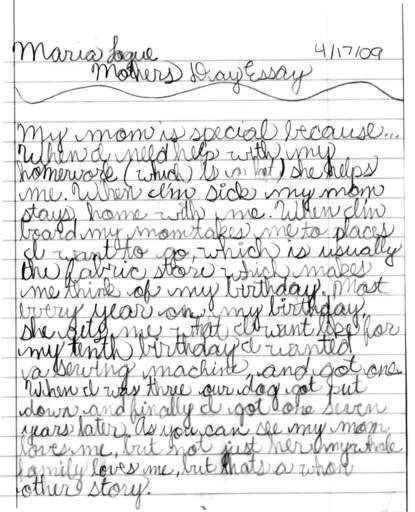 Maria Logue 4/17/09
Mothers Day Essay
My mom is special because...
When I need help with my
homework (which is a lot) she helps
me. When I'm sick my mom
stays home with me. When I'm
board my mom takes me to places
I want to go, which is usually
the fabric store which makes
me think of my birthday. Most
every year on my birthday,
she gets me what I want like for
my tenth birthday I wanted
a sewing machine, and got one.
When I was three our dog got put
down and finally I got one seven
years later. As you can see my mom
loves me, but not just her my whole
family loves me, but thats a whon
other story.